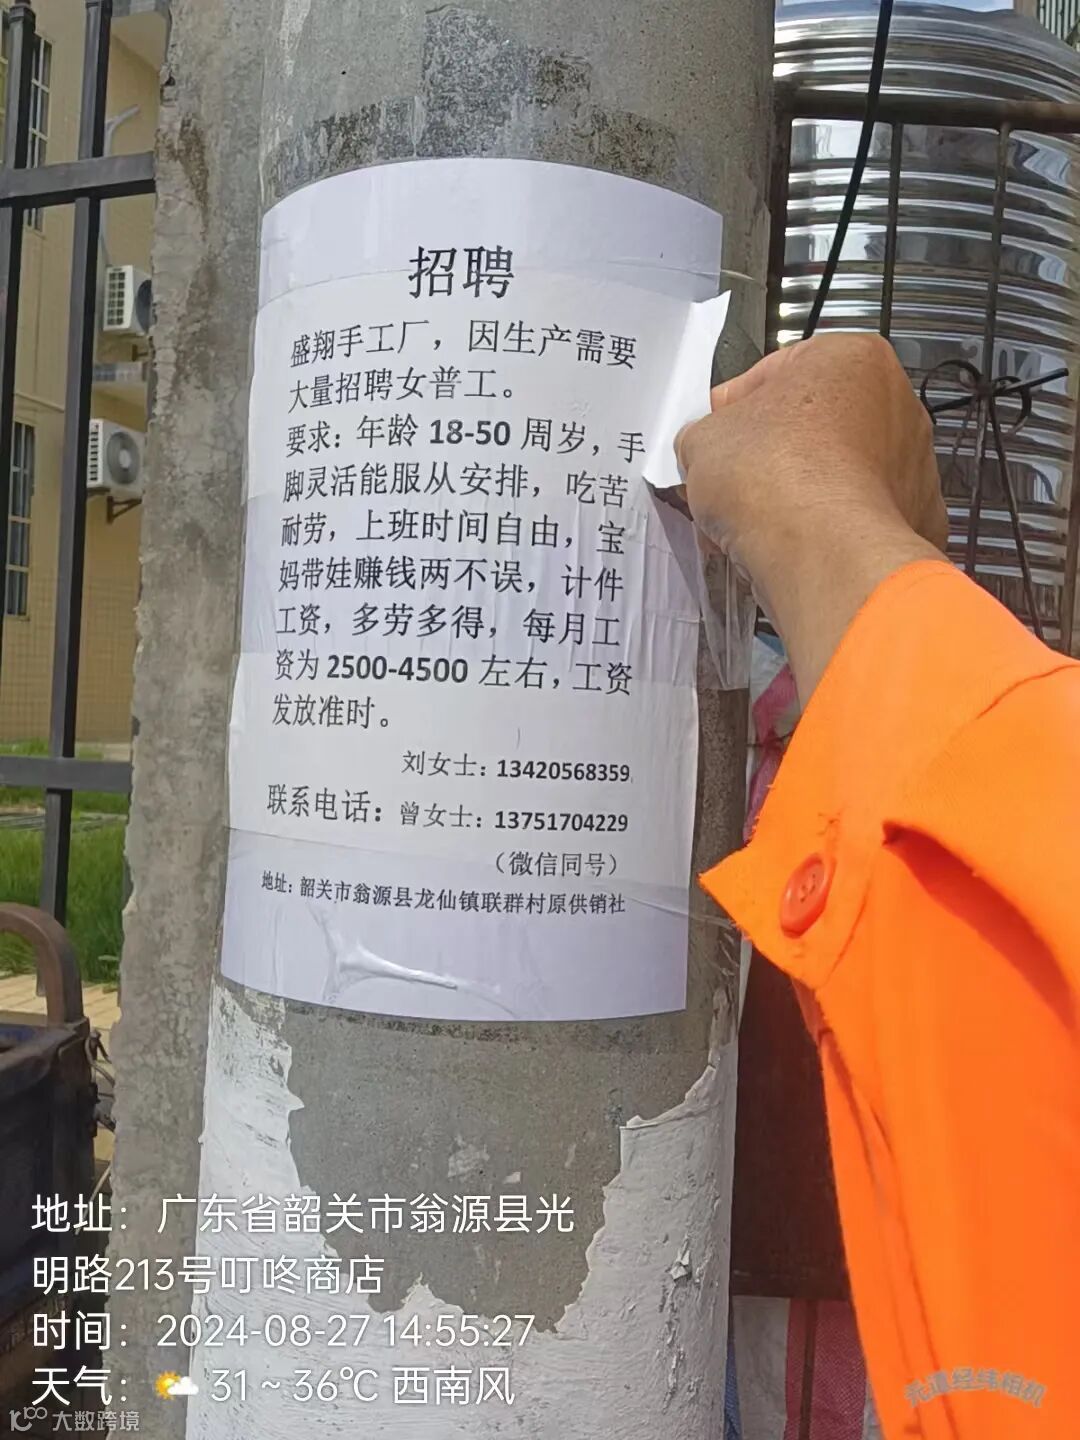 招聘
盛翔手工厂，因生产需要
大量招聘女普工。
要求：年龄 18-50 周岁，手
脚灵活能服从安排，吃苦
耐劳，上班时间自由，宝
妈带娃赚钱两不误，计件
工资，多劳多得，每月工
资为 2500-4500 左右，工资
发放准时。
刘女士：13420568359
联系电话：曾女士：13751704229
（微信同号）
地址：韶关市翁源县龙仙镇联群村原供销社
304
地址：广东省韶关市翁源县光
明路213号叮咚商店
时间：2024-08-27 14:55:27
天气：31 ~ 36℃ 西南风
元道经纬相机
大数跨境